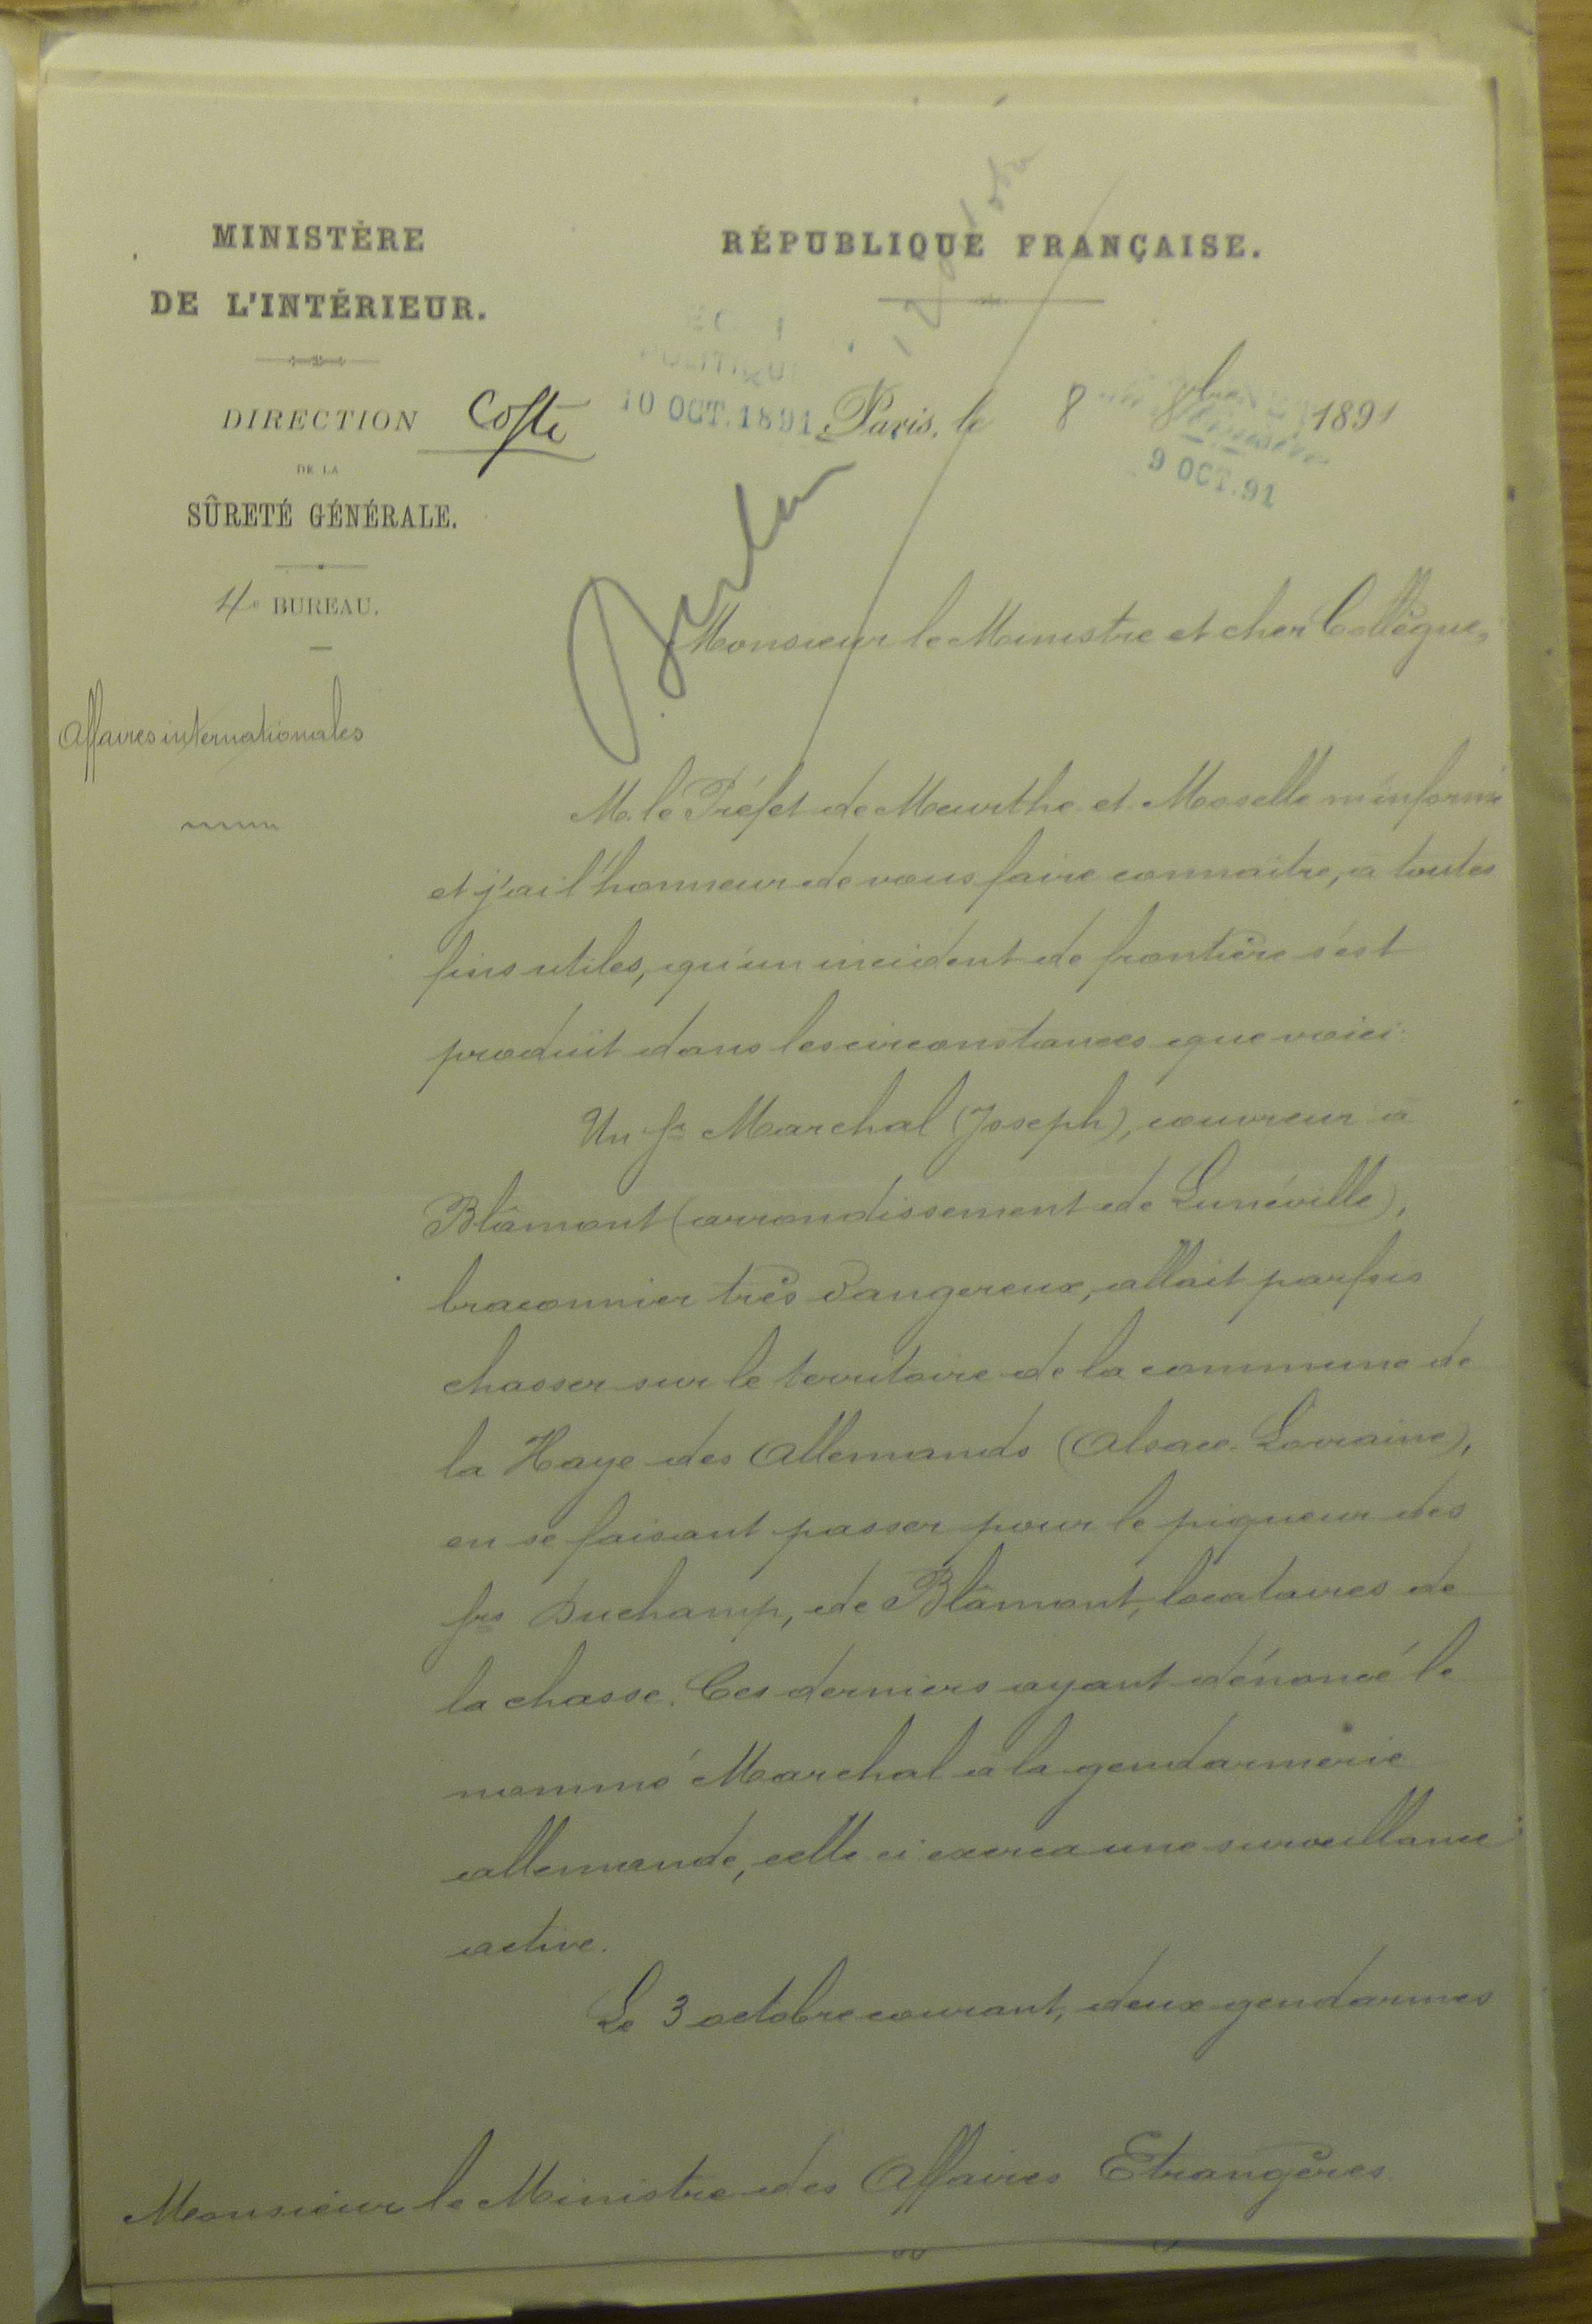 MINISTÈRE
DE L'INTÉRIEUR.
DIRECTION
DE LA
SÛRETÉ GÉNÉRALE.
4e BUREAU.
Affaires internationales
RÉPUBLIQUE FRANÇAISE.
10 OCT. 1891
Paris, le 8 8bre 1891
9 OCT. 91
Monsieur le Ministre et cher Collègue,
M. le Préfet de Meurthe et Moselle m'informe
et j'ai l'honneur de vous faire connaître, à toutes
fins utiles, qu'un incident de frontière s'est
produit dans les circonstances que voici:
Un sr Marchal (Joseph), couvreur à
Blâmont (arrondissement de Lunéville),
braconnier très dangereux, allait parfois
chasser sur le territoire de la commune de
la Haye des Allemands (Alsace-Lorraine),
en se faisant passer pour le piqueur des
srs Duchamp, de Blâmont, locataires de
la chasse. Ces derniers ayant dénoncé le
nommé Marchal à la gendarmerie
allemande, celle ci exerça une surveillance
active.
Le 3 octobre courant, deux gendarmes
Monsieur le Ministre des Affaires Etrangères